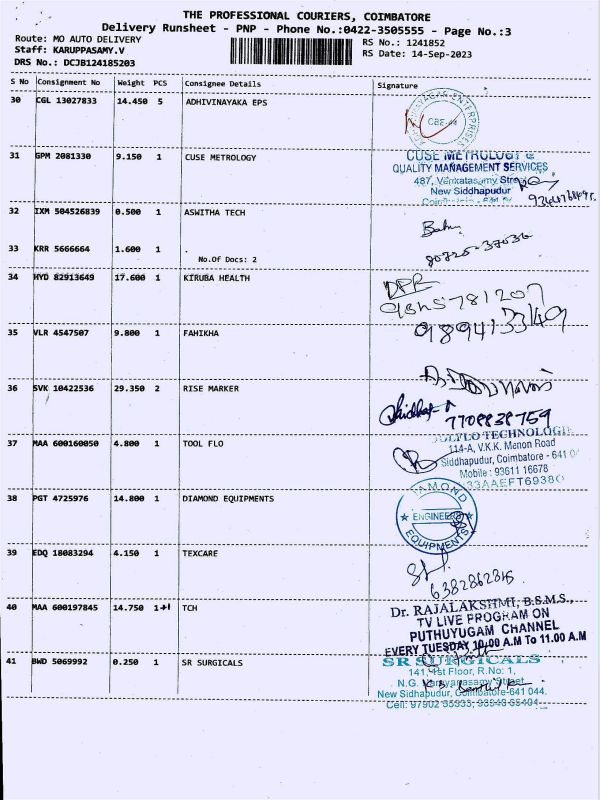 THE PROFESSIONAL COURIERS, COIMBATORE
Delivery Runsheet - PNP - Phone No.:0422-3505555 - Page No.:3
Route: MO AUTO DELIVERY
RS No.: 1241852
Staff: KARUPPASAMY.V
RS Date: 14-Sep-2023
DRS No.: DCJB124185203
S No Consignment No Weight PCS Consignee Details Signature
30 CGL 13027833 14.450 5 ADHIVINAYAKA EPS
31 GPM 2081330 9.150 1 CUSE METROLOGY
CUSE METROLOGY &
QUALITY MANAGEMENT SERVICES
487, Venkatasamy Street
New Siddhapudur
32 IXM 504526839 0.500 1 ASWITHA TECH
33 KRR 5666664 1.600 1
No.Of Docs: 2
34 HYD 82913649 17.600 1 KIRUBA HEALTH
35 VLR 4547507 9.800 1 FAHIKHA
9894133149
36 SVK 10422536 29.350 2 RISE MARKER
7708838759
37 MAA 600160050 4.800 1 TOOL FLO
TECHNOLOGI
114-A, V.K.K. Menon Road
Siddhapudur, Coimbatore - 641 0
Mobile : 93611 16678
33AAEFT6938
38 PGT 4725976 14.800 1 DIAMOND EQUIPMENTS
DIAMOND
ENGINEERS
EQUIPMENTS
39 EDQ 18083294 4.150 1 TEXCARE
40 MAA 600197845 14.750 1+1 TCH
Dr. RAJALAKSHMI, B.S.M.S.,
TV LIVE PROGRAM ON
PUTHUYUGAM CHANNEL
EVERY TUESDAY 10.00 A.M To 11.00 A.M
41 BWD 5069992 0.250 1 SR SURGICALS
SR SURGICALS
141, 1st Floor, R.No: 1,
N.G. Narayanasamy Street
New Sidhapudur, Coimbatore-641 044.